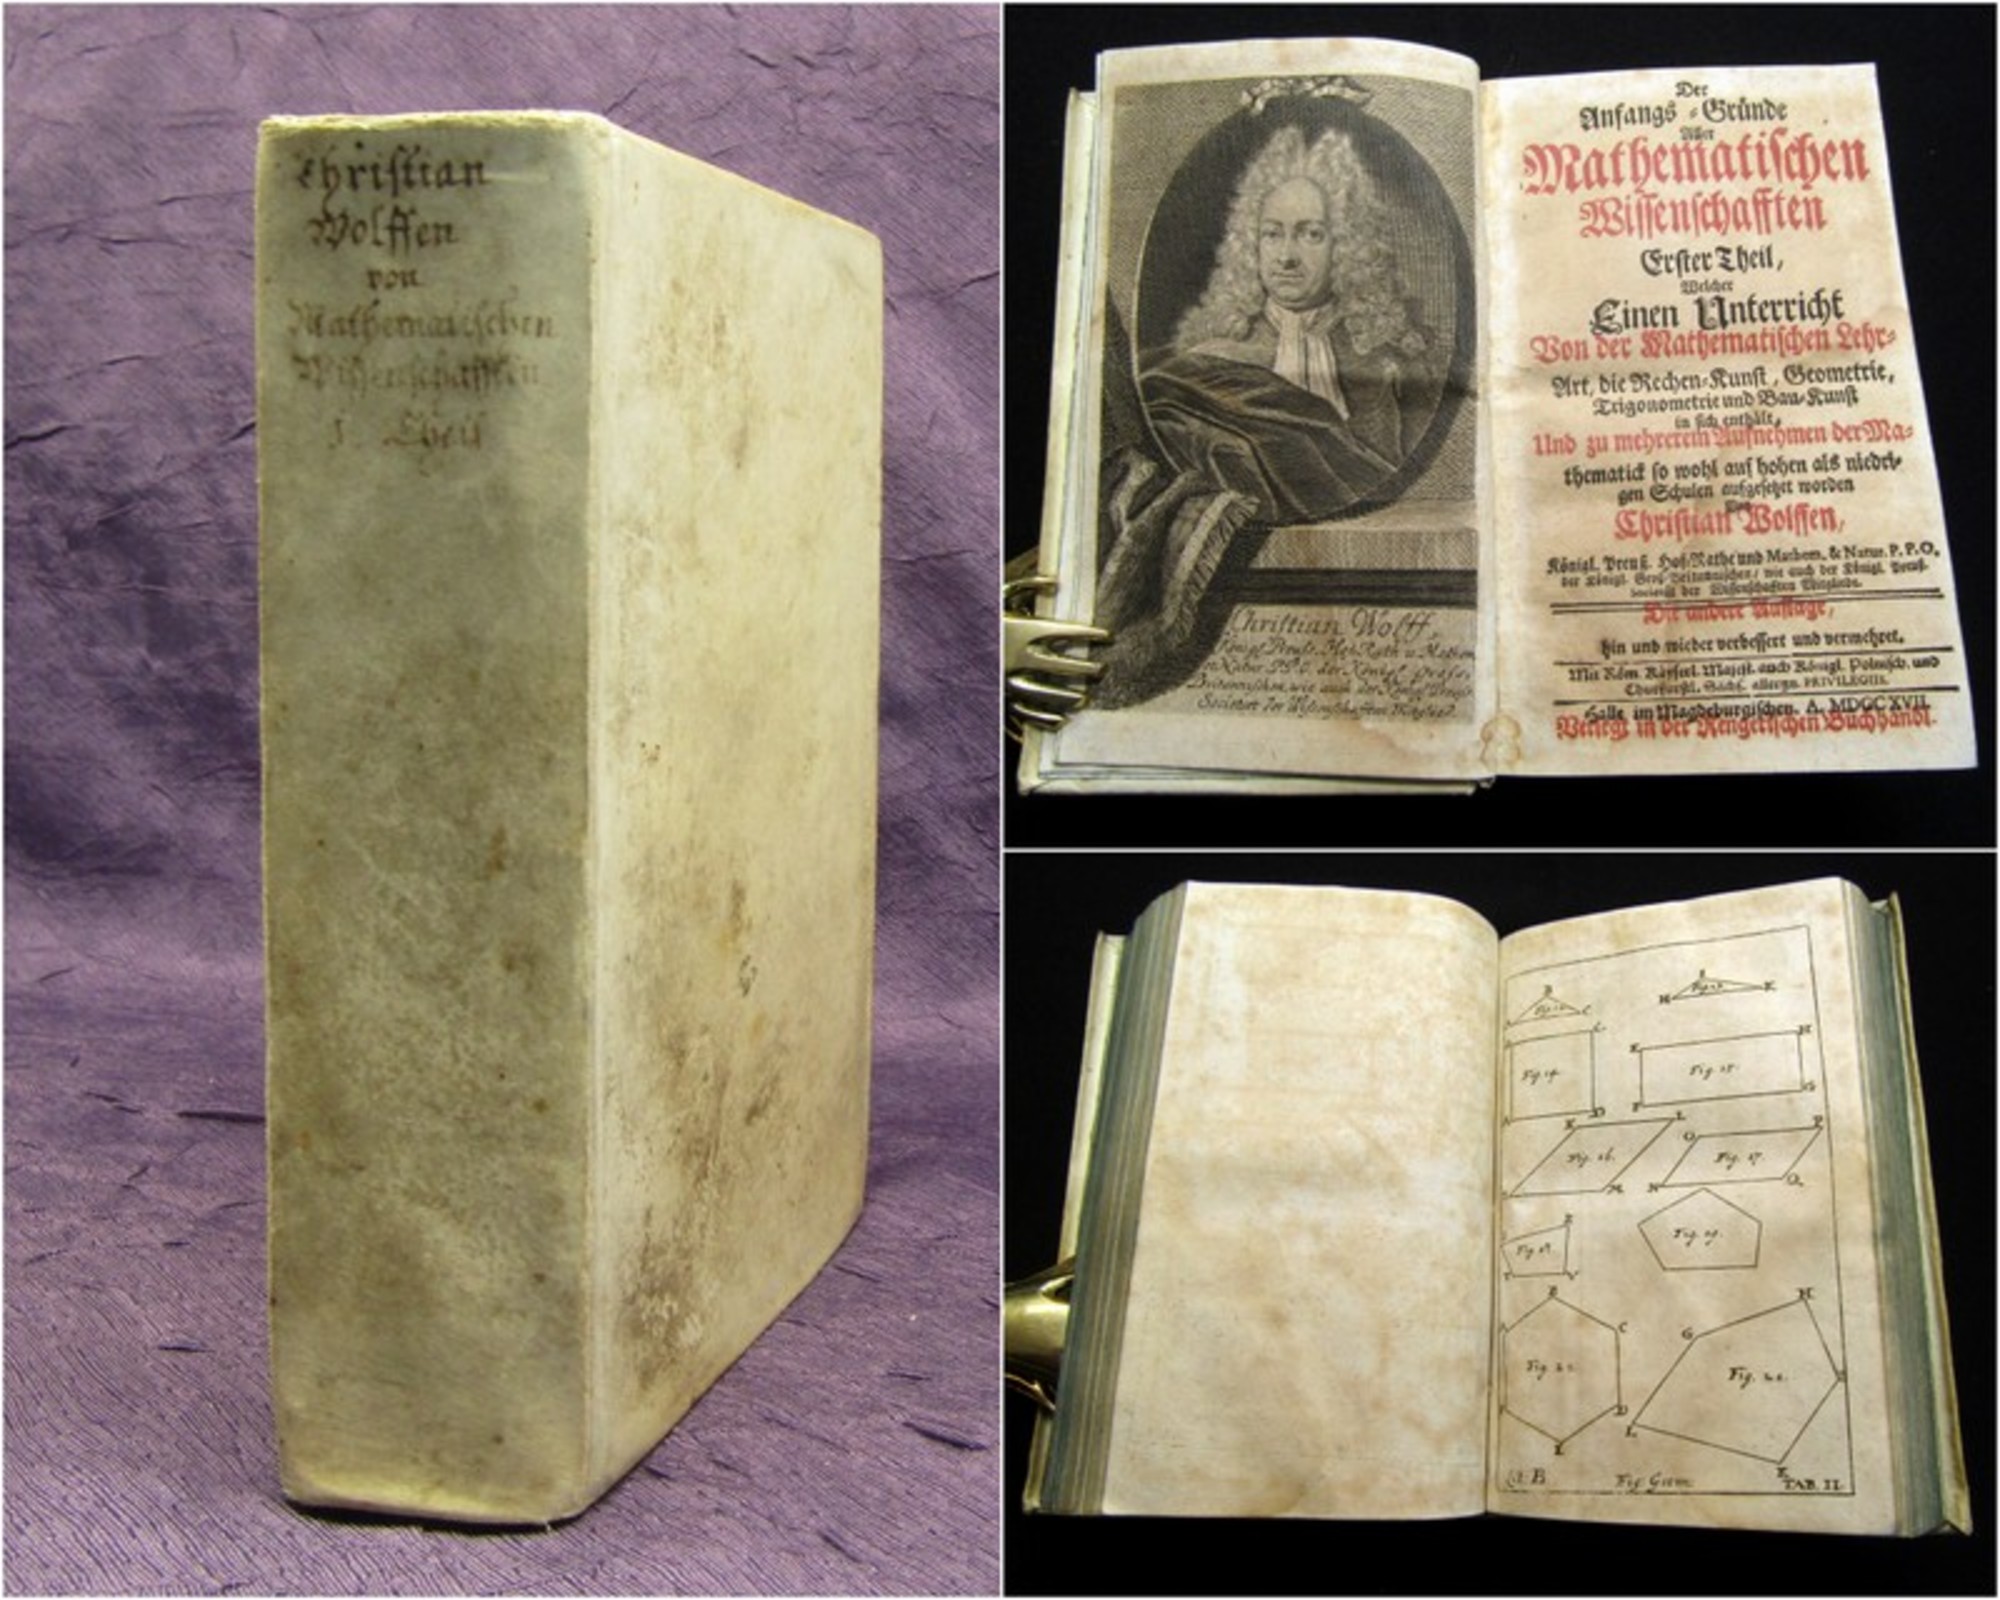 Christian
Wolffen
von
Mathematischen
Wissenschafften
I. Theil
Christian Wolff,
Königl. Preuß. Hof-Rath u. Mathem.
der Königl. Gross-
Britannischen wie auch der Königl. Preuß.
Societät der Wissenschafften Mitglied.
Der
Anfangs-Gründe
Aller
Mathematischen
Wissenschafften
Erster Theil,
Welcher
Einen Unterricht
Von der Mathematischen Lehr-
Art, die Rechen-Kunst, Geometrie,
Trigonometrie und Bau-Kunst
in sich enthält,
Und zu mehrerem Aufnehmen der Ma-
thematick so wohl auf hohen als niedri-
gen Schulen aufgesetzet worden
Von
Christian Wolffen,
Königl. Preuß. Hof-Rathe und Mathem. & Natur. P. P. O.
der Königl. Groß-Britannischen/ wie auch der Königl. Preuß.
Societät der Wissenschafften Mitgliede.
Die andere Auflage,
hin und wieder verbessert und vermehret.
Mit Röm. Käyserl. Majest. auch Königl. Polnisch. und
Churfürstl. Sächs. allergn. PRIVILEGIIS.
Halle im Magdeburgischen. A. MDCCXVII.
Verlegt in der Rengerischen Buchhandl.
B
I
H K
C
L H
Fig. 14. K Fig. 15.
D F G
K L O P
Fig. 16. Fig. 17.
M N Q
Fig. 19.
V
B H
A C G
Fig. 20.
D L
E K
Lit. B Fig. Geom. TAB. II.